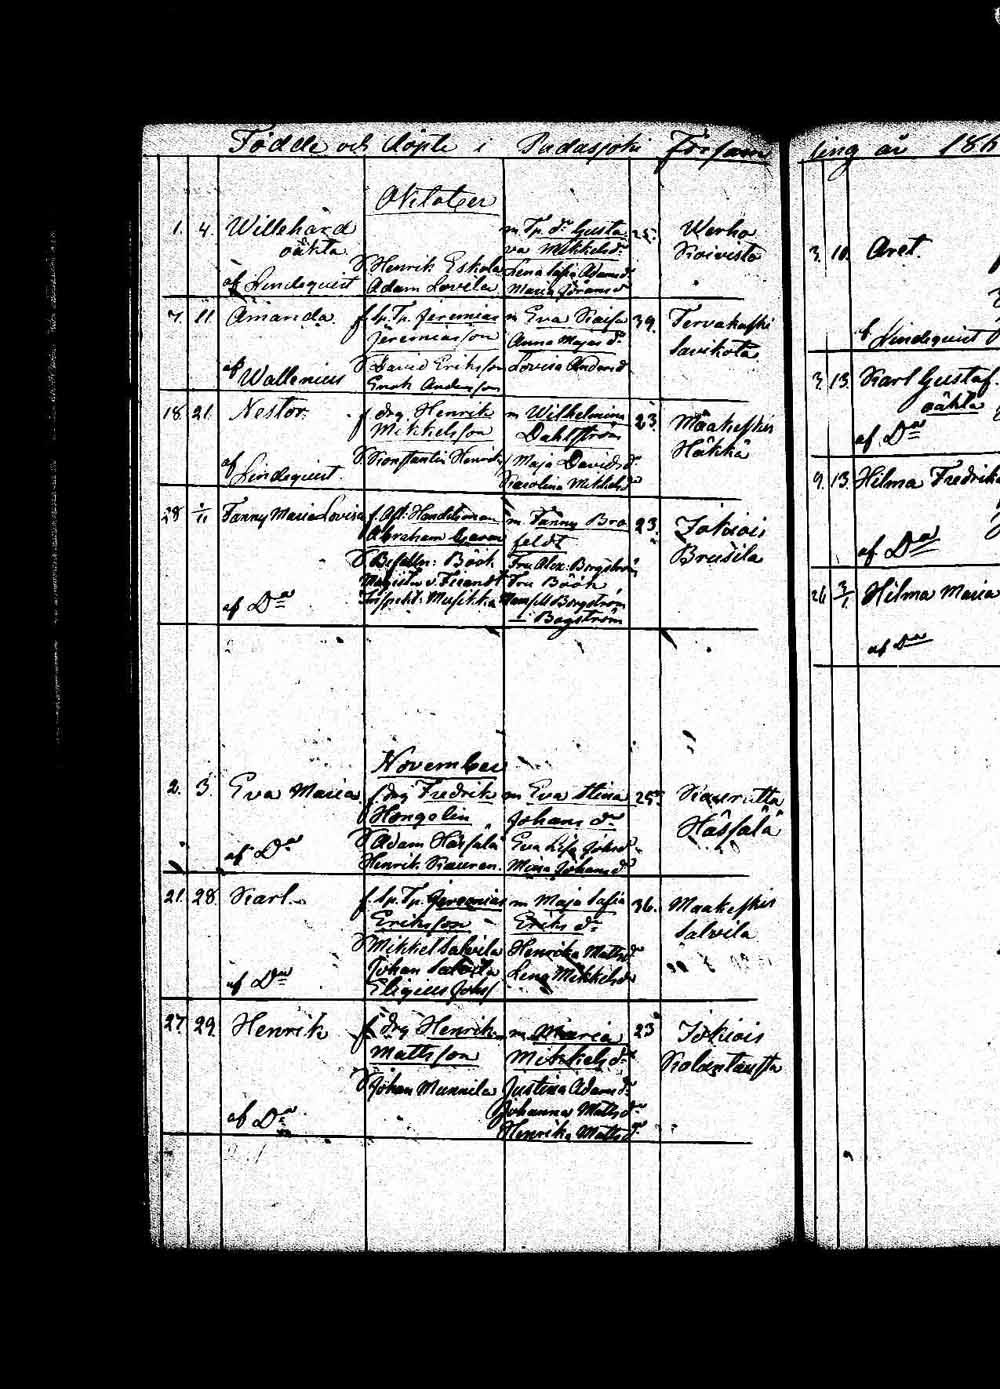 Födde och döpte i Padasjoki Försam
ling år 186
Oktober
1. 4. Willehard
oäkta
af Lindequist
S. Henrik Eskola
Adam Lovela
m Tp. dr Gusta
va Mikkelsdr
Lena Sofia Adamsdr
Maria Göransdr
25.
Werho
Koivisto
7. 11. Amanda
af Wallenius
f Sp. Tp. Jeremias
Jeremiasson
S. David Eriksson
Enok Andersson
m Eva Kaisa
Anna Majas dr
Lovisa Andersd
39.
Tervakoski
Savikota
18. 21. Nestor.
af Lindequist.
f drg Henrik
Mikkelsson
S. Konstantin Henriks
m Wilhelmina
Dahlström
Maja Davidsdr
Karolina Mikkelsdr
23.
Maakeskis
Häkkä
28 1/11 Fanny Maria Lovisa
af Do
f. Handelsman
Abraham
S. Befalln: Böök
Magister v.
Inspekt. Musikka
m. Fanny Bro
feldt
Fru Alex. Bergström
Fru Böök
Mamsell Bergström
23.
Jokiois
Brusila
November
2. 3. Eva Maria
af Do
f drg Fredrik
Hongelin
S. Adam Hassälä
Henrik Kauran.
m Eva Stina
Johans dr
Eva Lisa Johsd
Maria Johansd
25.
Kaurutta
Hässälä
21. 28. Karl.
af Do
f. Sp. Tp. Jeremias
Eriksson
S. Mikkel Salvila
Johan Salvila
Eligius Johs/
m Maja Sofia
Eriks dr
Henrika Mattsdr
Lena Mikkelsdr
36.
Maakeskis
Salvila
27. 29. Henrik
af Do
f drg Henrik
Mattsson
S. Johan Munnila
m. Maria
Mikkels dr
Justina Adamsdr
Johanna Mattsdr
Henrika Mattsdr
23
Jokiois
Kolantausta
3. 10. Aret.
af Lindequist
3. 13. Karl Gustaf
oäkta
af Do
9. 13. Hilma Fredrika
af Do
26 Hilma Maria
af Do